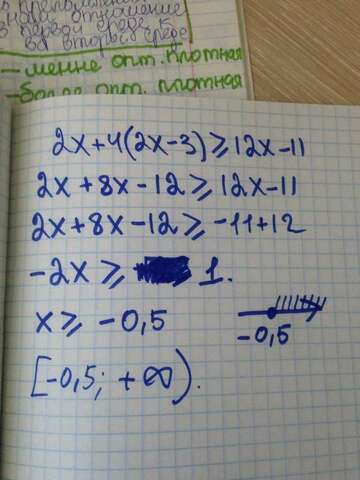 нова отношение
в первой среде к
во второй среде
– менне опт. плотная
– более опт. плотная
2x+4(2x-3)≥12x-11
2x+8x-12≥12x-11
2x+8x-12≥-11+12
-2x≥ 1.
x≥-0,5
-0,5
[-0,5; +∞).